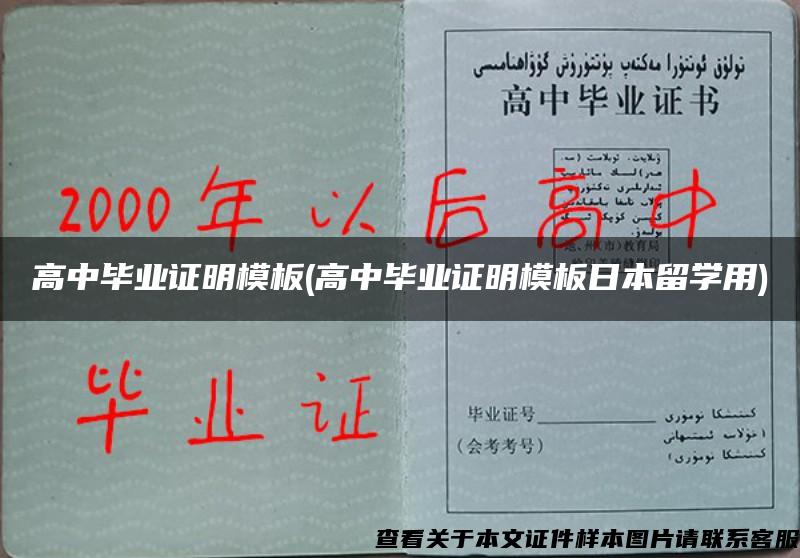 تولۇق ئوتتۇرا مەكتەپ پۈتتۈرۈش گۇۋاھنامىسى
高中毕业证书
2000年以后高中
地、州(市)教育局
高中毕业证明模板(高中毕业证明模板日本留学用)
毕业证
毕业证号 كىنىشكا نومۇرى
(会考考号) (خۇلاسە ئىمتىھانى كىنىشكا نومۇرى)
查看关于本文证件样本图片请联系客服